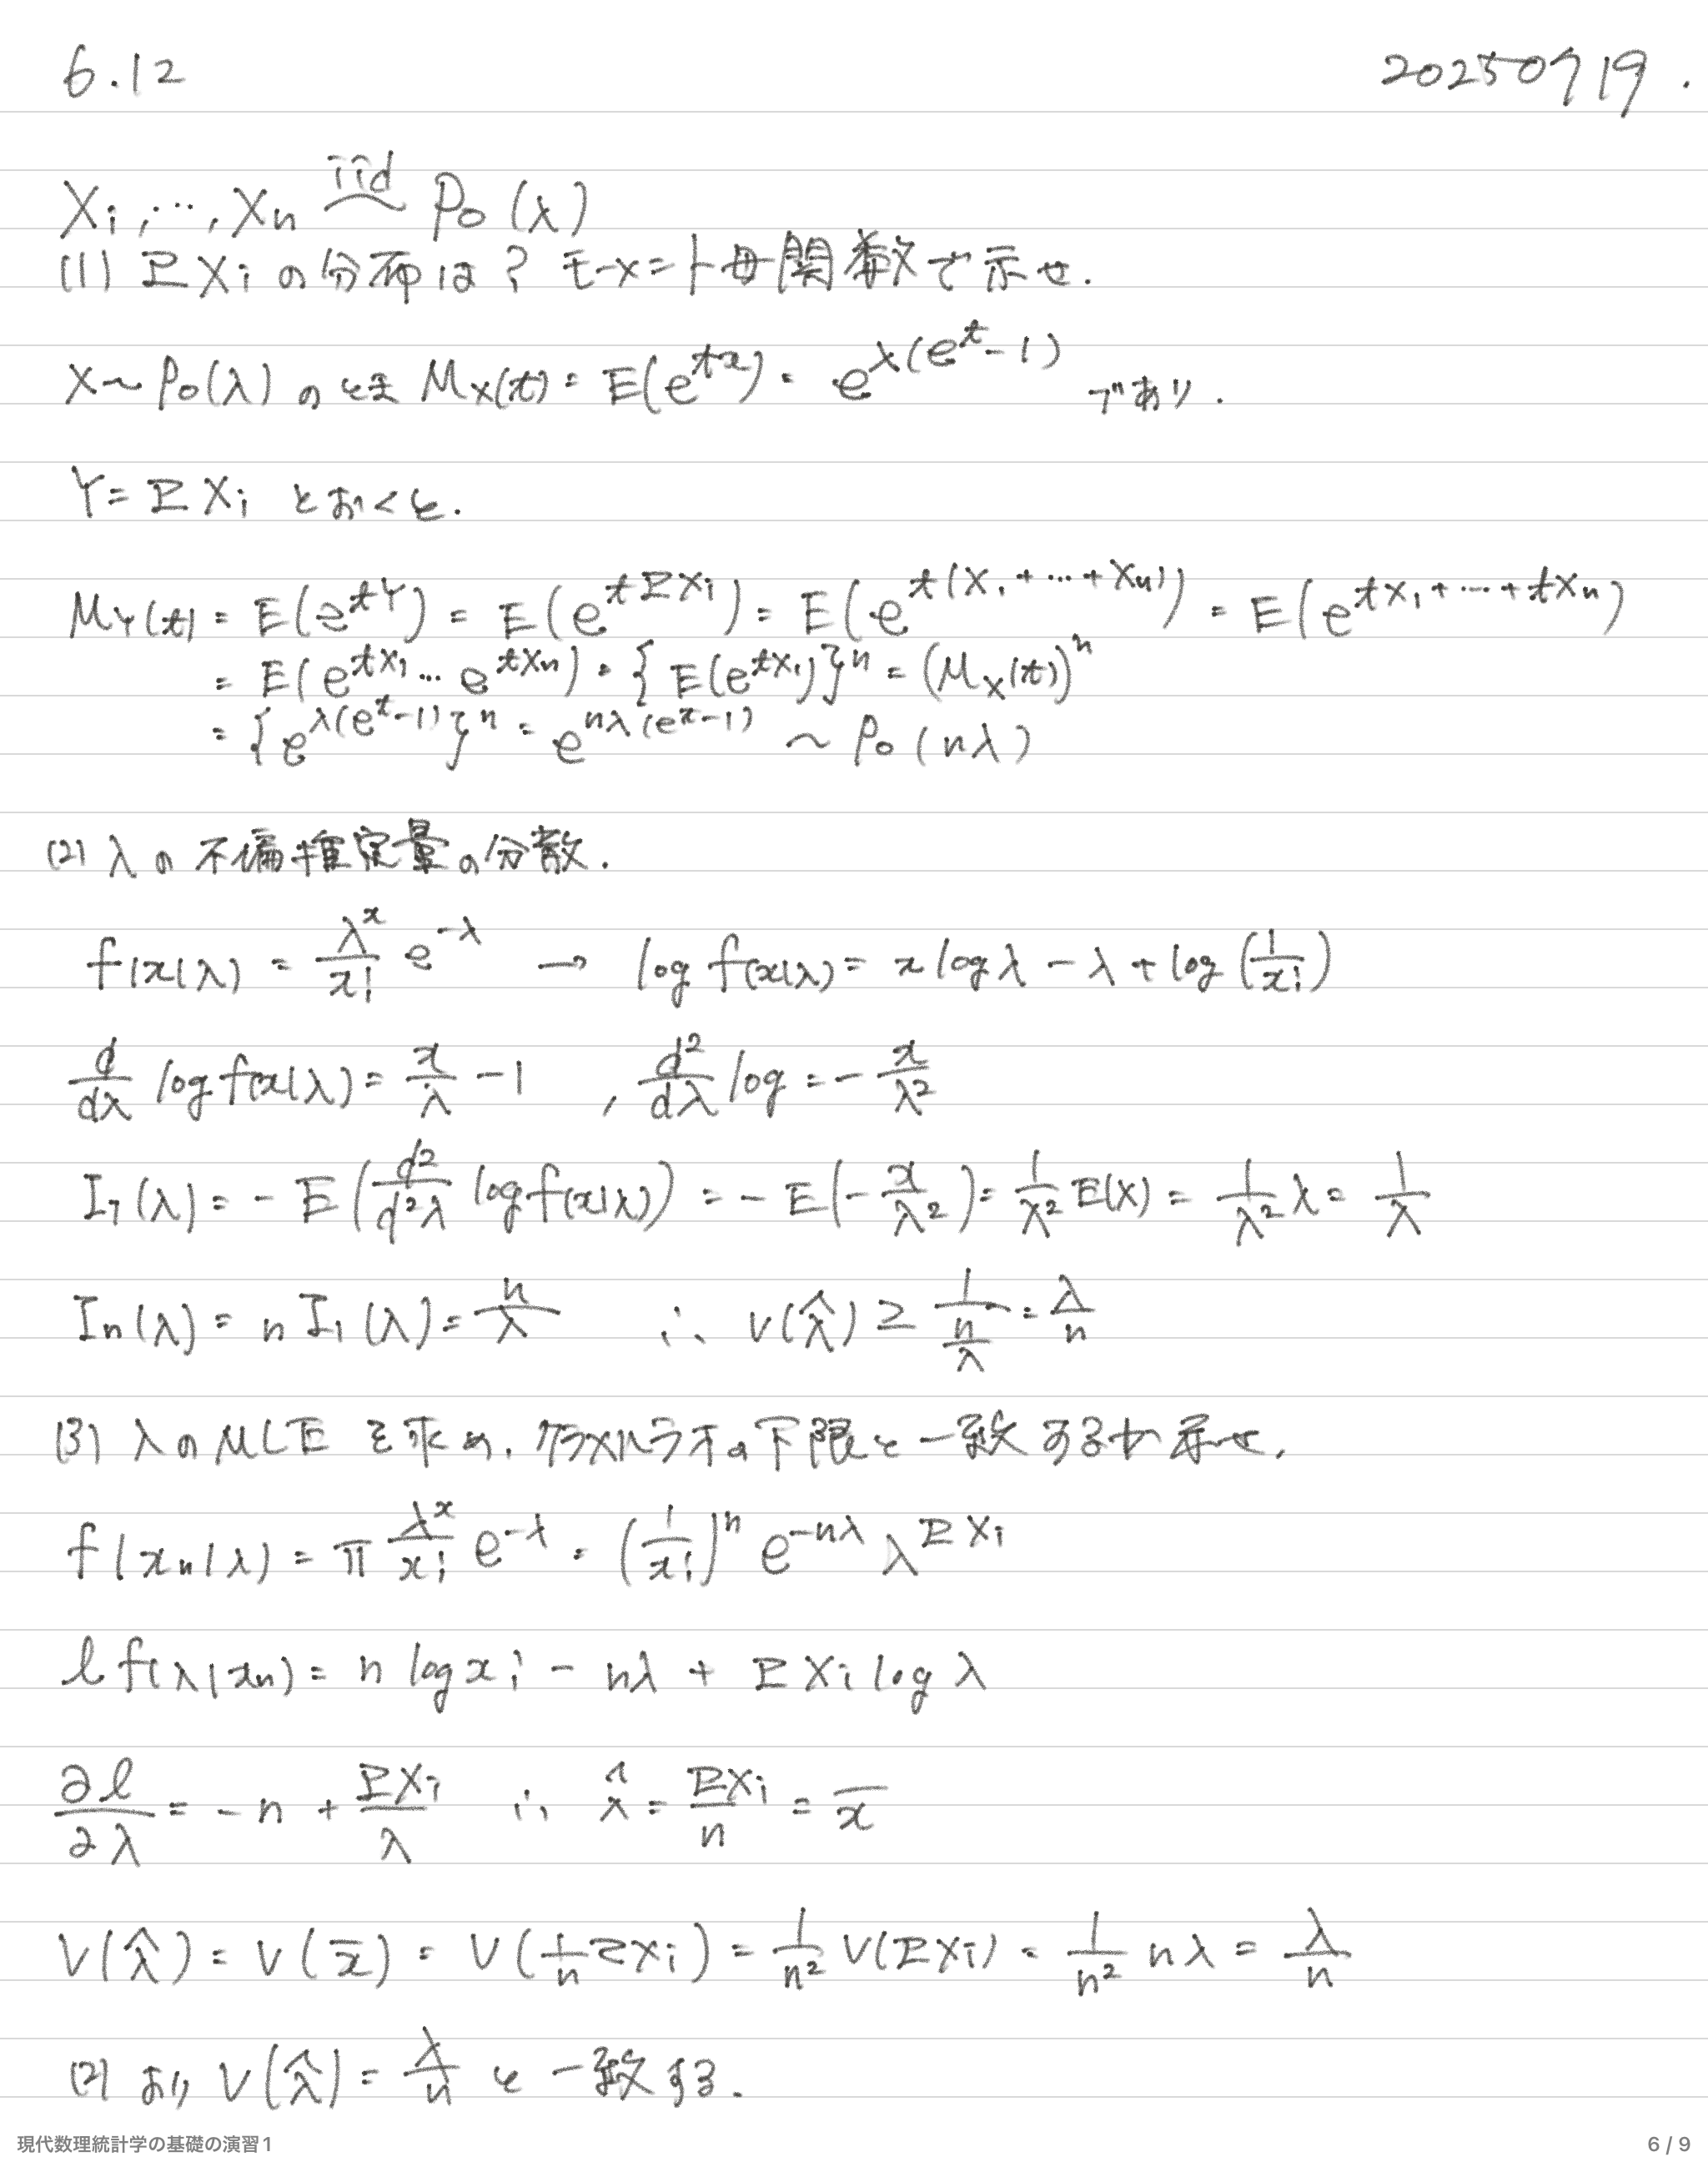 6.12 20250919.
Xi,…,Xn iid~ Po(λ)
(1) ΣXi の分布は? モーメント母関数で示せ.
X~Po(λ) のとき Mx(t) = E(e^{tx}) = e^{λ(e^t-1)} であり.
Y=ΣXi とおくと.
M_Y(t) = E(e^{tY}) = E(e^{tΣXi}) = E(e^{t(X₁+…+Xn)}) = E(e^{tX₁+…+tXn})
= E(e^{tX₁}…e^{tXn}) = {E(e^{tX₁})}^n = (M_X(t))^n
= {e^{λ(e^t-1)}}^n = e^{nλ(e^t-1)} ~ Po(nλ)
(2) λの不偏推定量の分散.
f(x|λ) = λ^x/x! e^{-λ} → log f(x|λ) = x log λ - λ + log(1/x!)
d/dλ log f(x|λ) = x/λ - 1 , d²/dλ log = - x/λ²
I₁(λ) = - E(d²/d²λ log f(x|λ)) = - E(- x/λ²) = 1/λ² E(X) = 1/λ² λ = 1/λ
In(λ) = n I₁(λ) = n/λ ∴ V(λ̂) ≥ 1/(n/λ) = λ/n
(3) λのMLEを求め, クラメルラオの下限と一致するか示せ.
f(xn|λ) = π λ^x/x! e^{-λ} = (1/x!)^n e^{-nλ} λ^{ΣXi}
l f(λ|xn) = n log x! - nλ + ΣXi log λ
∂l/∂λ = - n + ΣXi/λ ∴ λ̂ = ΣXi/n = x̄
V(λ̂) = V(x̄) = V(1/n ΣXi) = 1/n² V(ΣXi) = 1/n² nλ = λ/n
(2) より V(λ̂) = λ/n と一致する.
現代数理統計学の基礎の演習1 6 / 9